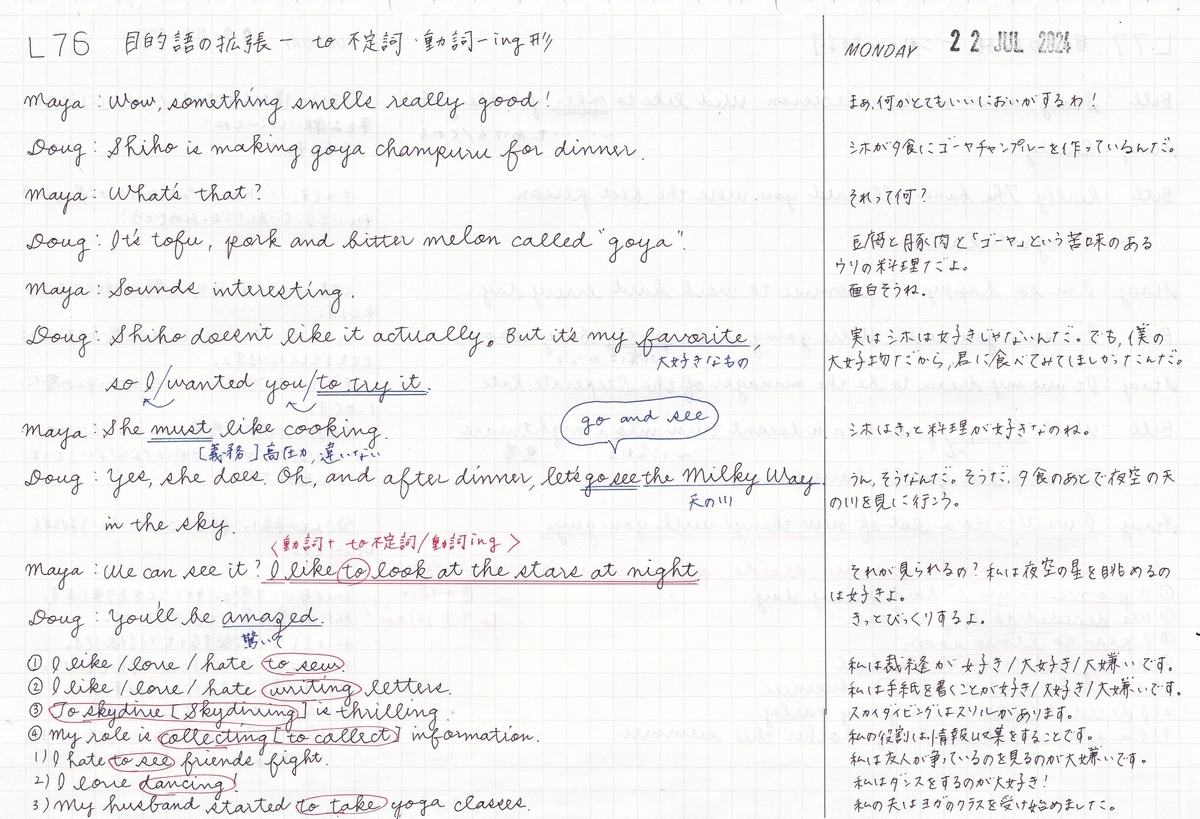 L76 目的語の拡張 - to 不定詞・動詞-ing形
MONDAY 22 JUL 2024
Maya : Wow, something smells really good!
まぁ,何かとてもいいにおいがするわ!
Doug : Shiho is making goya champuru for dinner.
シホが夕食にゴーヤチャンプルーを作っているんだ。
Maya : What's that?
それって何?
Doug : It's tofu, pork and bitter melon called "goya".
豆腐と豚肉と「ゴーヤ」という苦味のある
ウリの料理だよ。
Maya : Sounds interesting.
面白そうね。
Doug : Shiho doesn't like it actually. But it's my favorite,
実はシホは好きじゃないんだ。でも,僕の
大好きなもの
大好物だから,君に食べてみてほしかったんだ。
so I/wanted you/to try it.
go and see
Maya : She must like cooking.
シホはきっと料理が好きなのね。
[義務]高圧力,違いない
Doug : Yes, she does. Oh, and after dinner, let's go see the Milky Way
うん,そうなんだ。そうだ,夕食のあとで夜空の天
天の川
の川を見に行こう。
in the sky.
<動詞+ to不定詞/動詞ing>
Maya : We can see it? I like to look at the stars at night
それが見られるの?私は夜空の星を眺めるの
は好きよ。
Doug : You'll be amazed.
きっとびっくりするよ。
驚いて
① I like/love/hate to sew.
私は裁縫が好き/大好き/大嫌いです。
② I like/love/hate writing letters.
私は手紙を書くことが好き/大好き/大嫌いです。
③ To skydive [Skydiving] is thrilling.
スカイダイビングはスリルがあります。
④ My role is collecting [to collect] information.
私の役割は情報収集をすることです。
1) I hate to see friends fight.
私は友人が争っているのを見るのが大嫌いです。
2) I love dancing!
私はダンスをするのが大好き!
3) My husband started to take yoga classes.
私の夫はヨガのクラスを受け始めました。